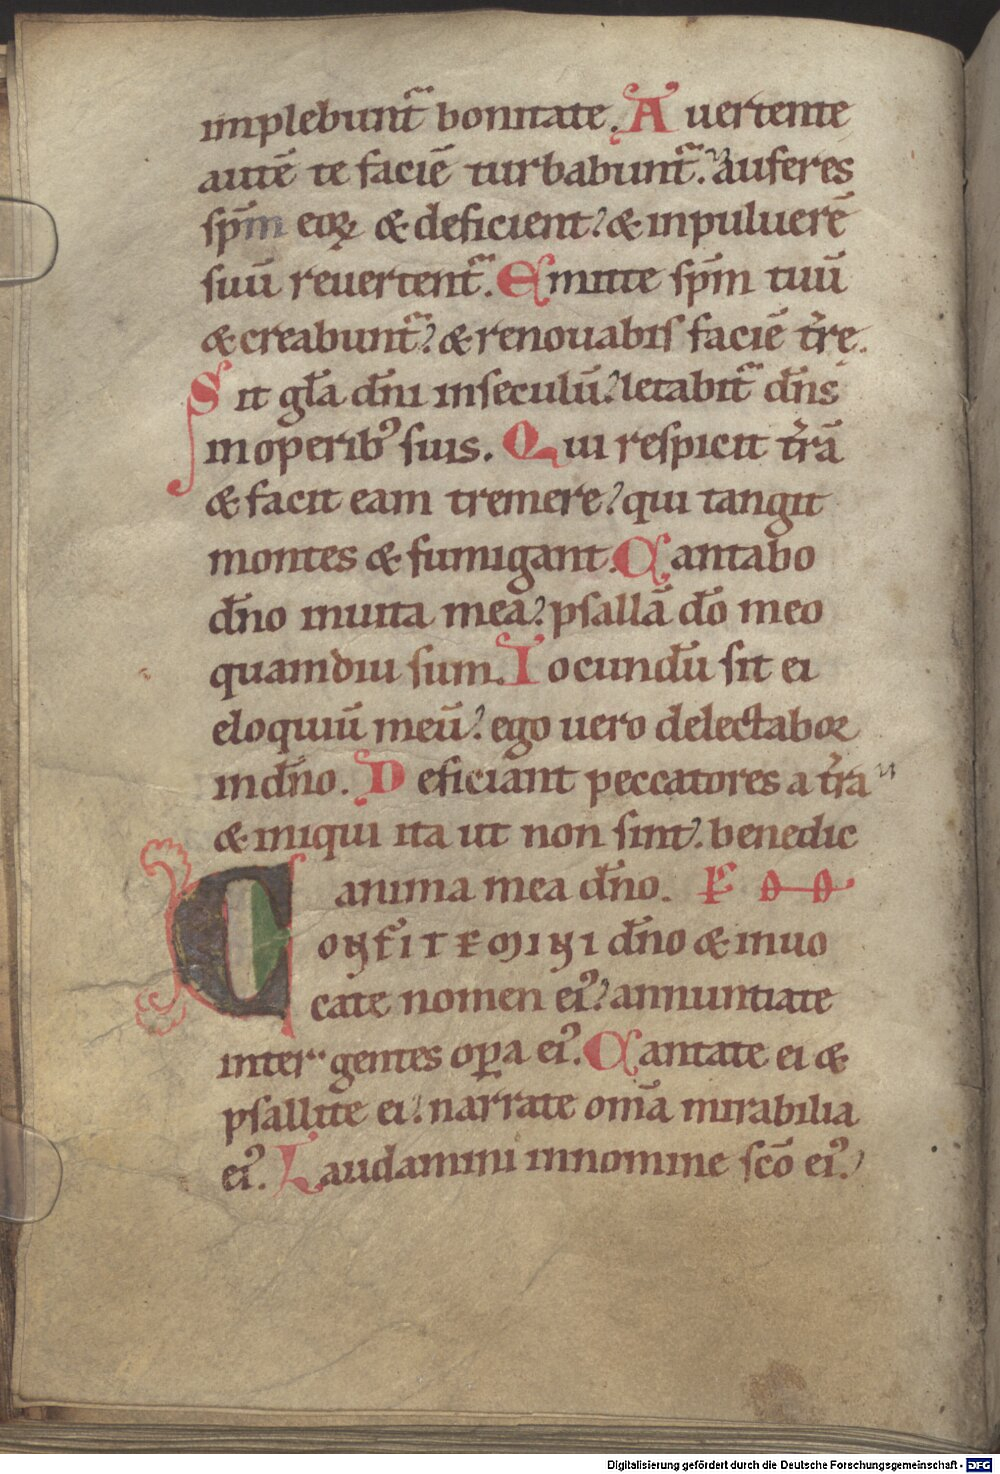 implebunt᷑ bonitate. A uertente
autē te faciē turbabunt᷑. auferes
sp̄m eoꝝ & deficient? & inpulueрē
suū reuertent᷑. Emitte sp̄m tuū
& creabunt᷑? & renouabis faciē t̄rę.
Sit gl̄a dn̄i inseculū? letabit᷑ dn̄s
inoperibꝰ suis. Qui respicit t̄rā
& facit eam tremere? qui tangit
montes & fumigant. Cantabo
dn̄o inuita mea? psallā dō meo
quamdiu sum. Iocundū sit ei
eloquiū meū? ego uero delectabor
indn̄o. Deficiant peccatores a t̄ra
& iniqui ita ut non sint? benedic
anima mea dn̄o.
CONFITEMINI dn̄o & inuo
cate nomen eiꝰ? annuntiate
inter gentes oꝑa eiꝰ. Cantate ei &
psallite ei? narrate om̄a mirabilia
eiꝰ. Laudamini innomine scō eiꝰ?
Digitalisierung gefördert durch die Deutsche Forschungsgemeinschaft - DFG